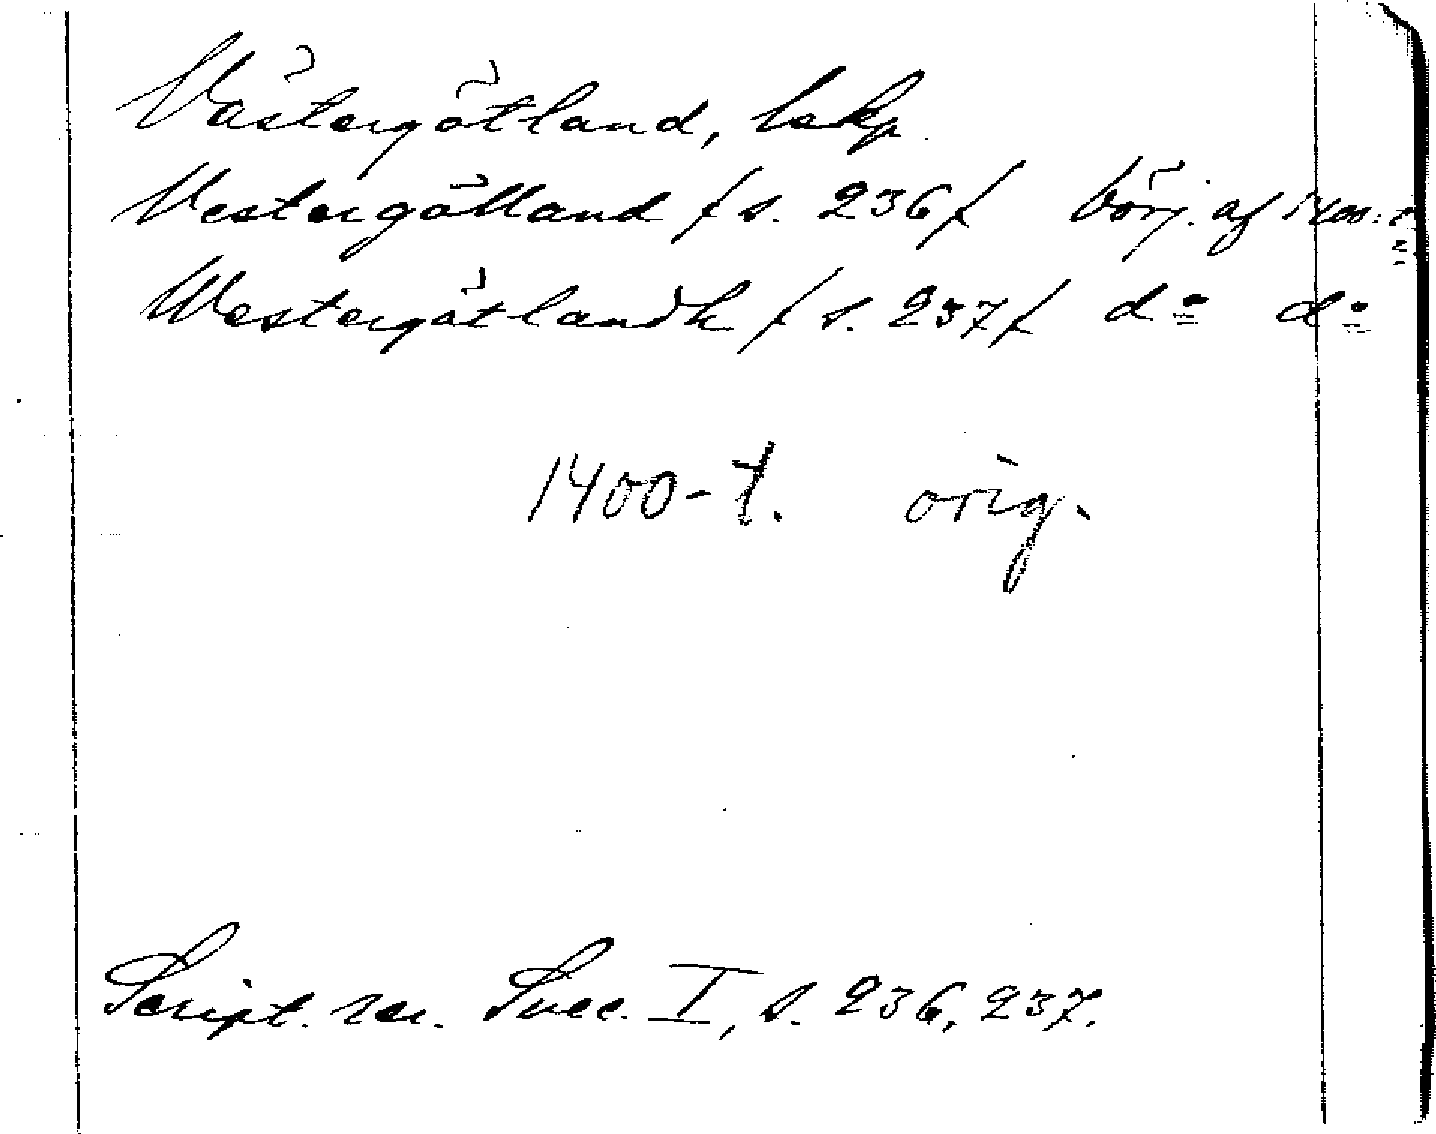 Västergötland, lskp.
Vestergötland /s. 236/ börj. af 1400-t.
Westergötlandh /s. 237/ do do
1400-t. orig.
Script. rer. Svec. I, s. 236, 237.